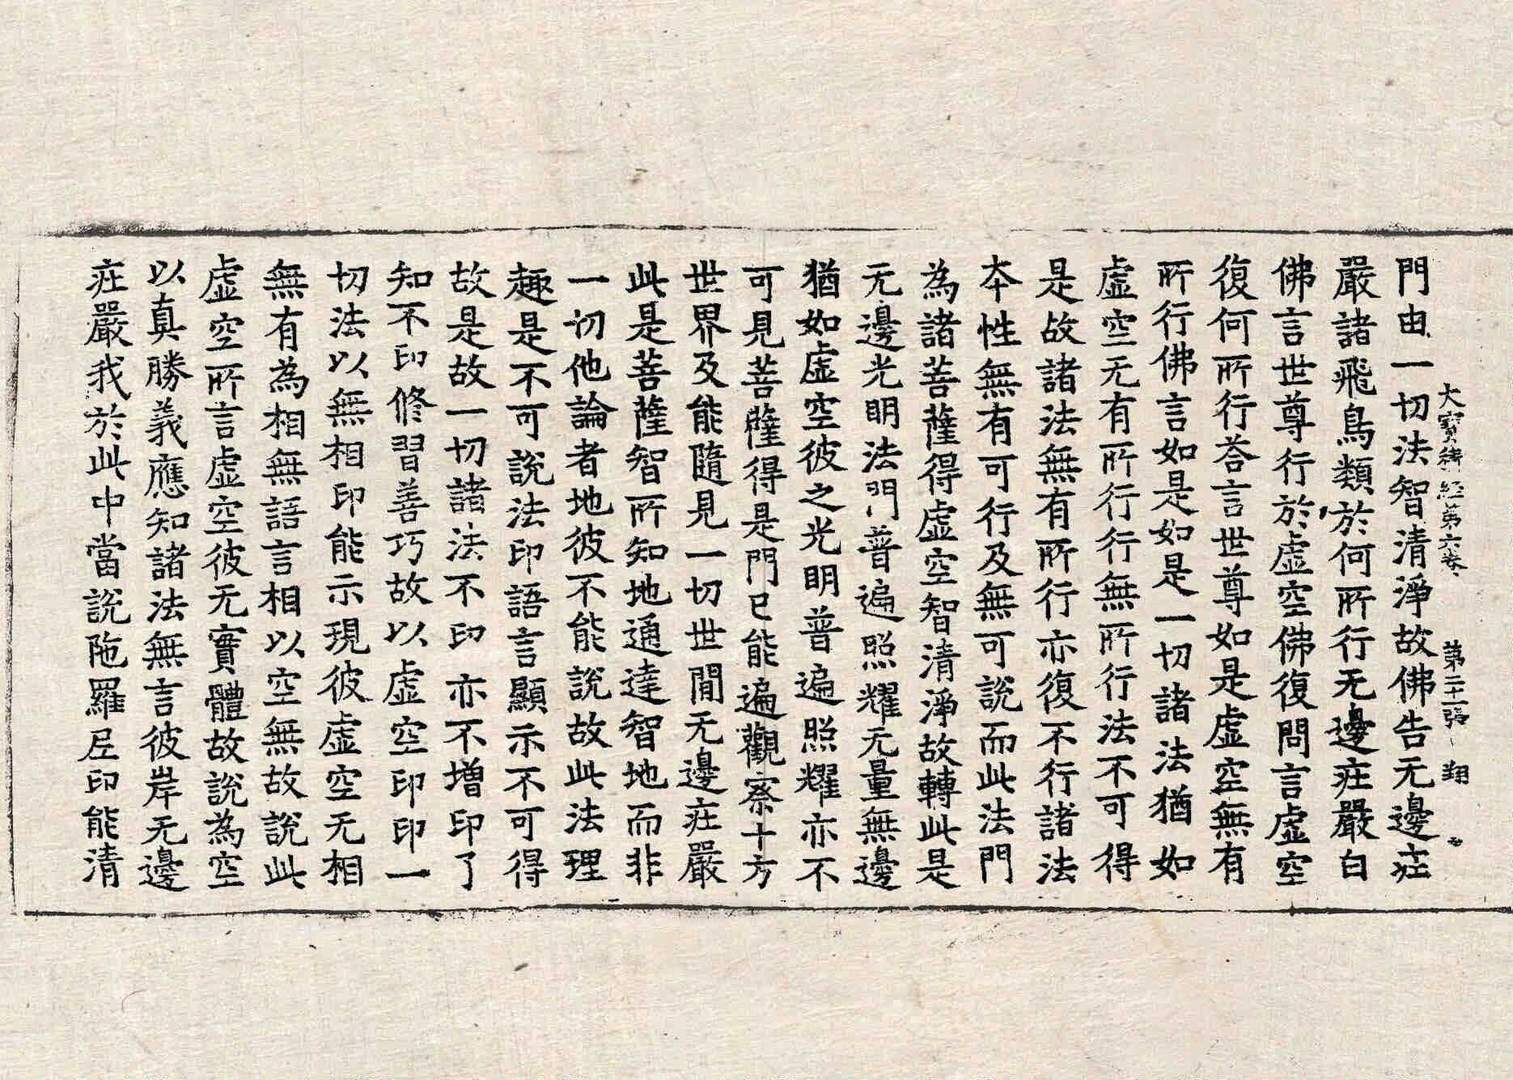 大寶積經第六卷 第二十一張 翔
門由一切法智清淨故佛告无邊庄
嚴諸飛鳥類於何所行无邊庄嚴白
佛言世尊行於虛空佛復問言虛空
復何所行荅言世尊如是虛空無有
所行佛言如是如是一切諸法猶如
虛空无有所行行無所行法不可得
是故諸法無有所行亦復不行諸法
本性無有可行及無可說而此法門
為諸菩薩得虛空智清淨故轉此是
无邊光明法門普遍照耀无量無邊
猶如虛空彼之光明普遍照耀亦不
可見菩薩得是門已能遍觀察十方
世界及能隨見一切世間无邊庄嚴
此是菩薩智所知地通達智地而非
一切他論者地彼不能說故此法理
趣是不可說法印語言顯示不可得
故是故一切諸法不印亦不增印了
知不印修習善巧故以虛空印印一
切法以無相印能示現彼虛空无相
無有為相無語言相以空無故說此
虛空所言虛空彼无實體故說為空
以真勝義應知諸法無言彼岸无邊
庄嚴我於此中當說陁羅尼印能清